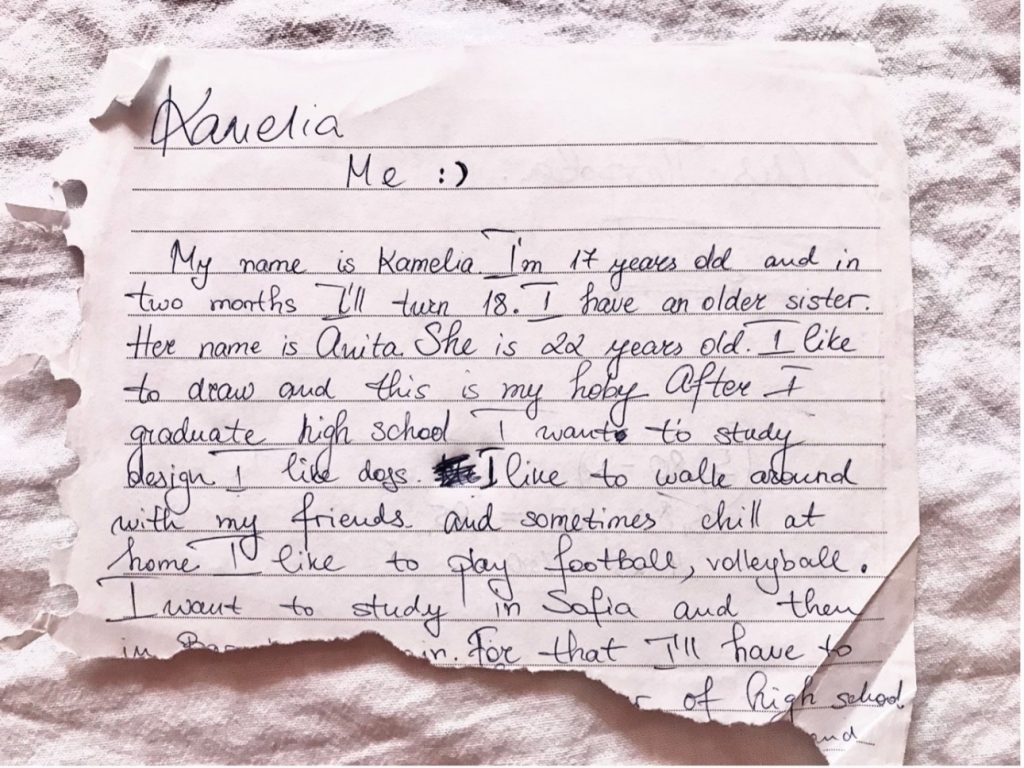 Kamelia
Me :)
My name is Kamelia. I'm 17 years old and in
two months I'll turn 18. I have an older sister.
Her name is Anita. She is 22 years old. I like
to draw and this is my hoby After I
graduate high school I want to study
design I like dogs. I like to walk around
with my friends and sometimes chill at
home I like to play football, volleyball.
I want to study in Sofia and then
in For that I'll have to
of high school
and